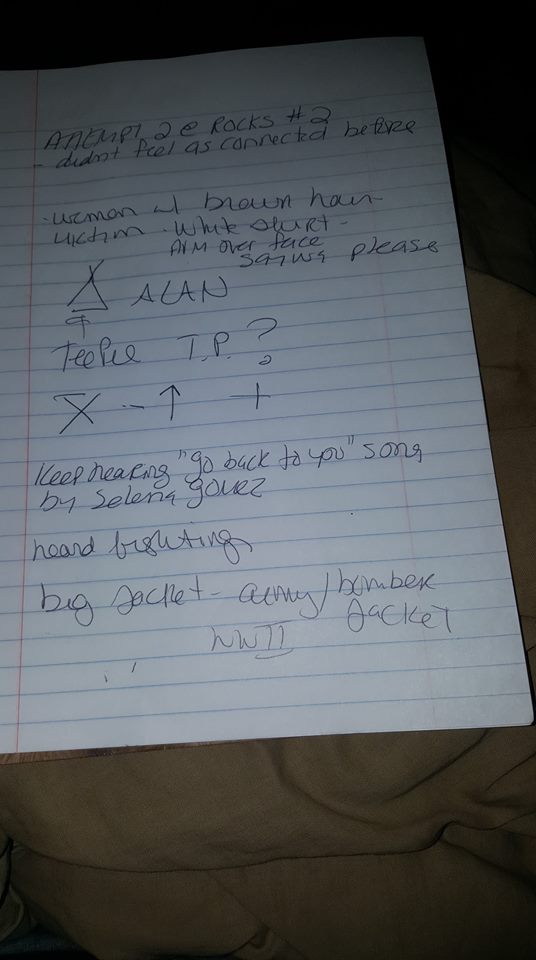 ATTEMPT 2 @ ROCKS #2
- didn't feel as connected before
- woman w/ brown hair
victim - white shirt -
ARM over face
saying please
ALAN
TeePee T.P. ?
X - ↑ +
Keep hearing "go back to you" song
by Selena gomez
heard fighting
big Jacket - army/bomber
Jacket
WWII